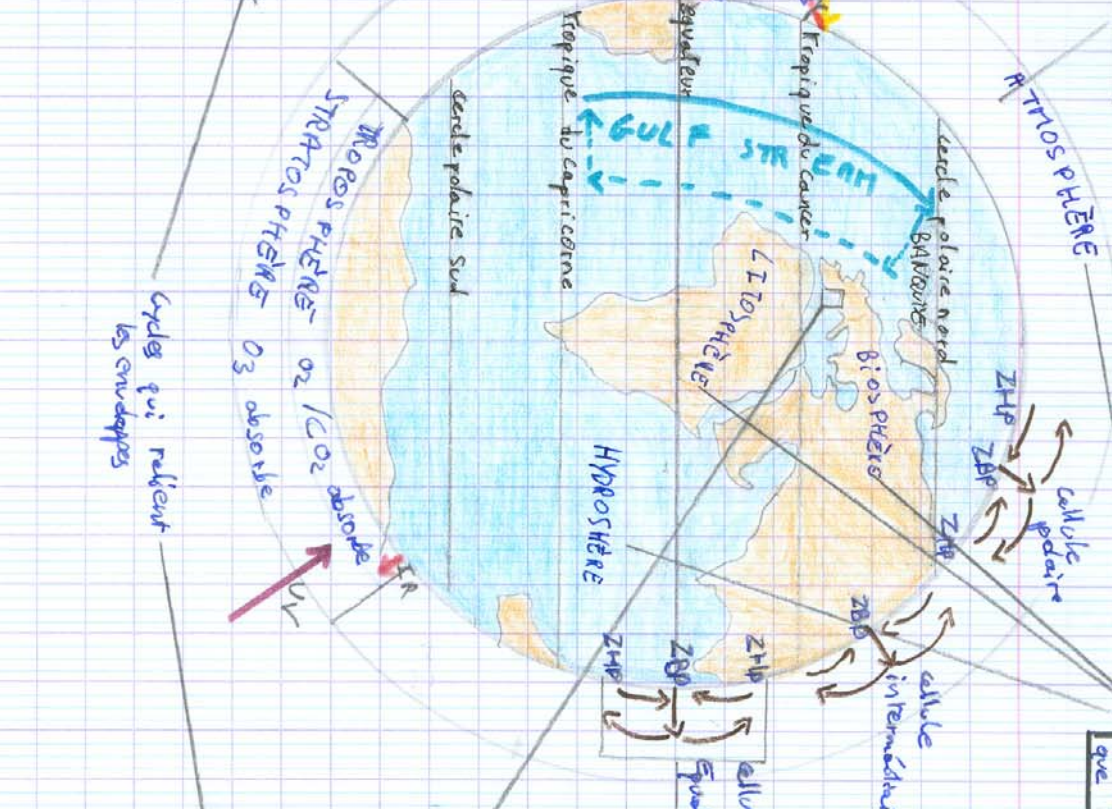 ATMOSPHÈRE
cercle polaire nord
BANQUISE
tropique du Cancer
équateur
tropique du Capricorne
cercle polaire sud
GULF STREAM
LITOSPHÈRE
BIOSPHÈRE
HYDROSHÈRE
TROPOSPHÈRE O2/CO2 absorbe
STRATOSPHÈRE O3 absorbe
IR
UV
Cycles qui relient
les enveloppes
ZHP
ZBP
ZHP
cellule
polaire
ZBP
cellule
ZHP
ZBP
ZHP
que